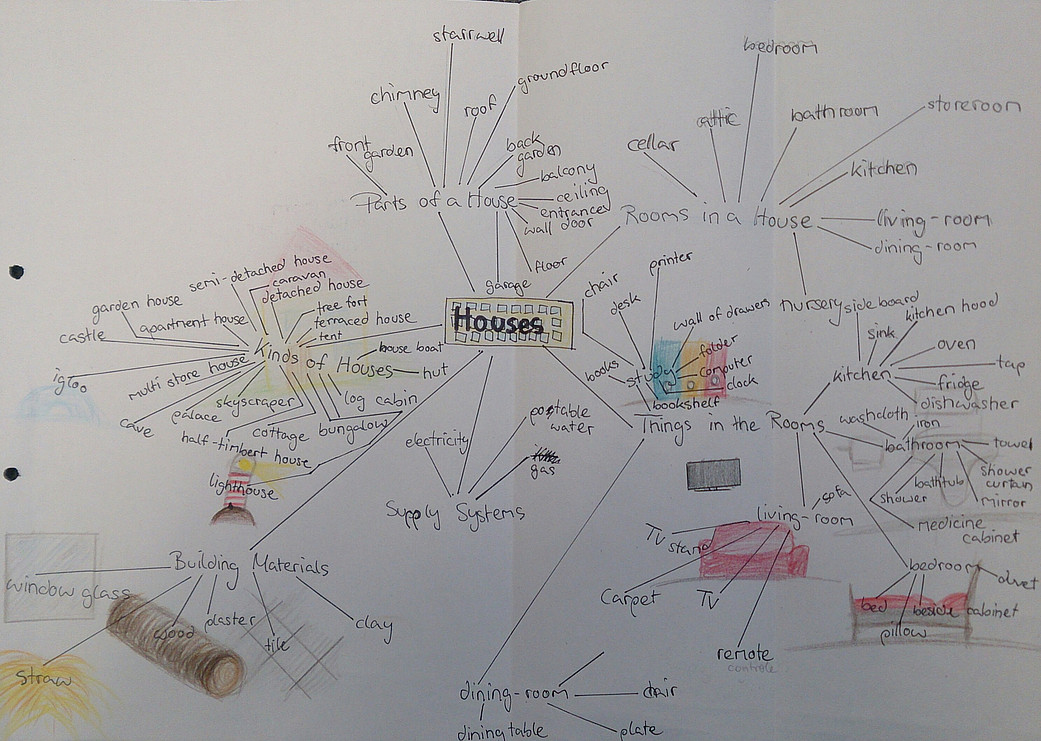 stairwell
chimney
roof
groundfloor
front
garden
back
garden
balcony
ceiling
entrance
wall door
floor
garage
Parts of a House
bedroom
attic
bathroom
storeroom
cellar
kitchen
living-room
dining-room
Rooms in a House
nursery
semi-detached house
caravan
detached house
garden house
apartment house
tree fort
terraced house
tent
castle
Kinds of Houses
house boat
hut
igloo
multi store house
skyscraper
log cabin
cave
palace
cottage
bungalow
half-timbert house
lighthouse
Houses
chair
printer
desk
wall of drawers
books
study
folder
computer
clock
bookshelf
Things in the Rooms
sideboard
kitchen hood
sink
oven
tap
kitchen
fridge
dishwasher
washcloth
iron
bathroom
towel
bathtub
shower
curtain
shower
mirror
medicine
cabinet
electricity
water
gas
Supply Systems
sofa
living-room
TV
stand
Carpet
TV
remote
controle
bedroom
bed
beside cabinet
pillow
Building Materials
window glass
wood
plaster
tile
clay
straw
dining-room
chair
dining table
plate